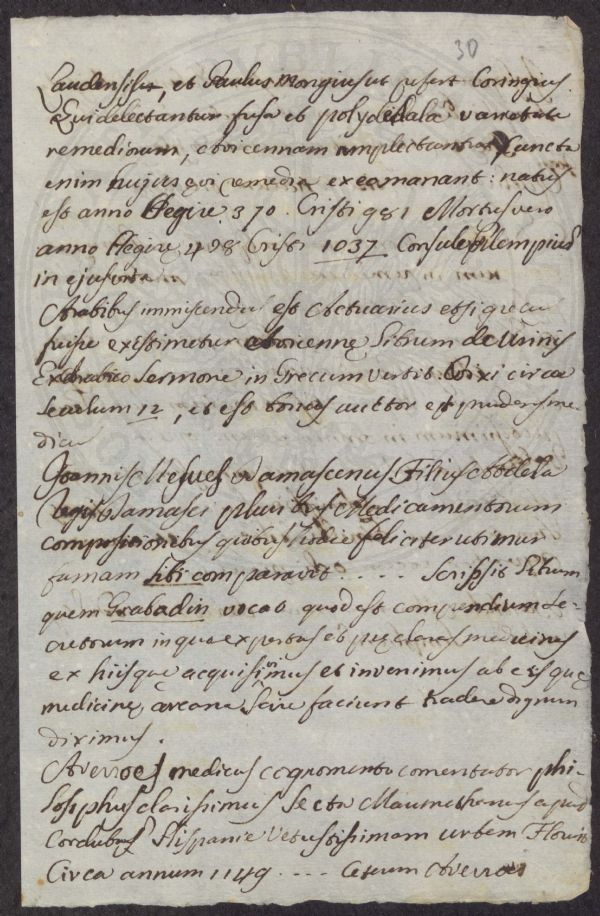 30
Laudensises, et Paulus Mongius ut refert Coringius
Qui delectantur fusa et polydedala varietate
remediorum, Avicennam amplectantur Cuncta
enim hujus ævi remedia ex eo manant: natus
est anno Hegire 370. Cristi 981 Mortus vero
anno Hegirę 428 Cristi 1037 Consule
in ejus vita
Arabibus immiscendus est Actuarius etsi grecus
fuisse existimetur Avicennę Librum de Urinis
Ex Arabico Sermone in Grecum vertit. Vixi circa
seculum 12, et est bonus auttor et prudens me-
dicus
Joannis Mesues Damascenus Filius Abdela
Regis Damasci pluribus Medicamentorum
compositionibus quibus hodie feliciter utimur
famam sibi comparavit .... Scripsit Librum
quem Grabadin vocat quod est compendium se-
cretorum in quo expertas et pręclaras medicinas
ex hiis que acquisivimus et invenimus ab eis quę
medicinę arcana scire faciunt tradere dignum
diximus.
Averroes medicus cognomento comentator phi-
losiphus clarissimus Secta Maumethanus apud
Cordubas Hispanie Vetustissimam urbem Floruit
Circa annum 1149 .... Ceterum Averroes